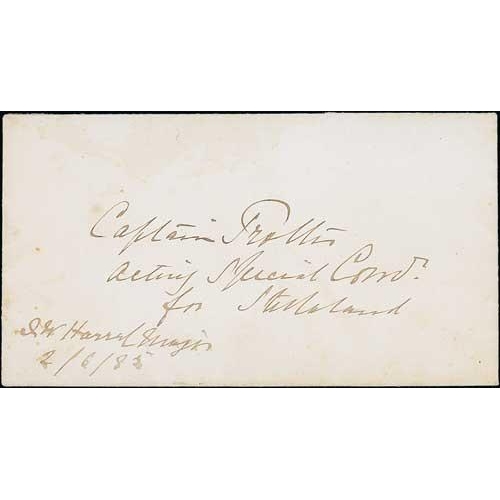 Captain Trotter
Acting Special Comr.
for Stellaland
Major
2/6/85